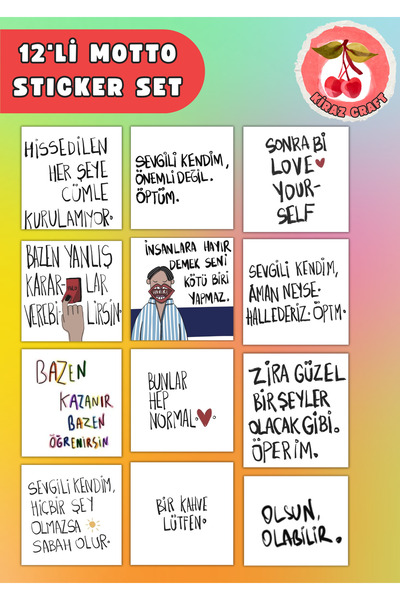 12'Lİ MOTTO
STICKER SET
KİRAZ CRAFT
HİSSEDİLEN
HER ŞEYE
CÜMLE
KURULAMIYOR.
SEVGİLİ KENDİM,
ÖNEMLİ DEĞİL.
ÖPTÜM.
SONRA Bİ
LOVE
YOUR-
SELF
BAZEN YANLIŞ
KARAR- LAR
VEREBİ LİRSİN.
İNSANLARA HAYIR
DEMEK SENİ
KÖTÜ BİRİ
YAPMAZ.
SEVGİLİ KENDİM,
AMAN NEYSE.
HALLEDERİZ. ÖPTM.
BAZEN
KAZANIR
BAZEN
ÖĞRENİRSİN
BUNLAR
HEP
NORMAL.
ZİRA GÜZEL
BİR ŞEYLER
OLACAK GİBİ.
ÖPERİM.
SEVGİLİ KENDİM,
HİÇBİR ŞEY
OLMAZSA
SABAH OLUR.
BİR KAHVE
LÜTFEN.
OLSUN,
OLABİLİR.